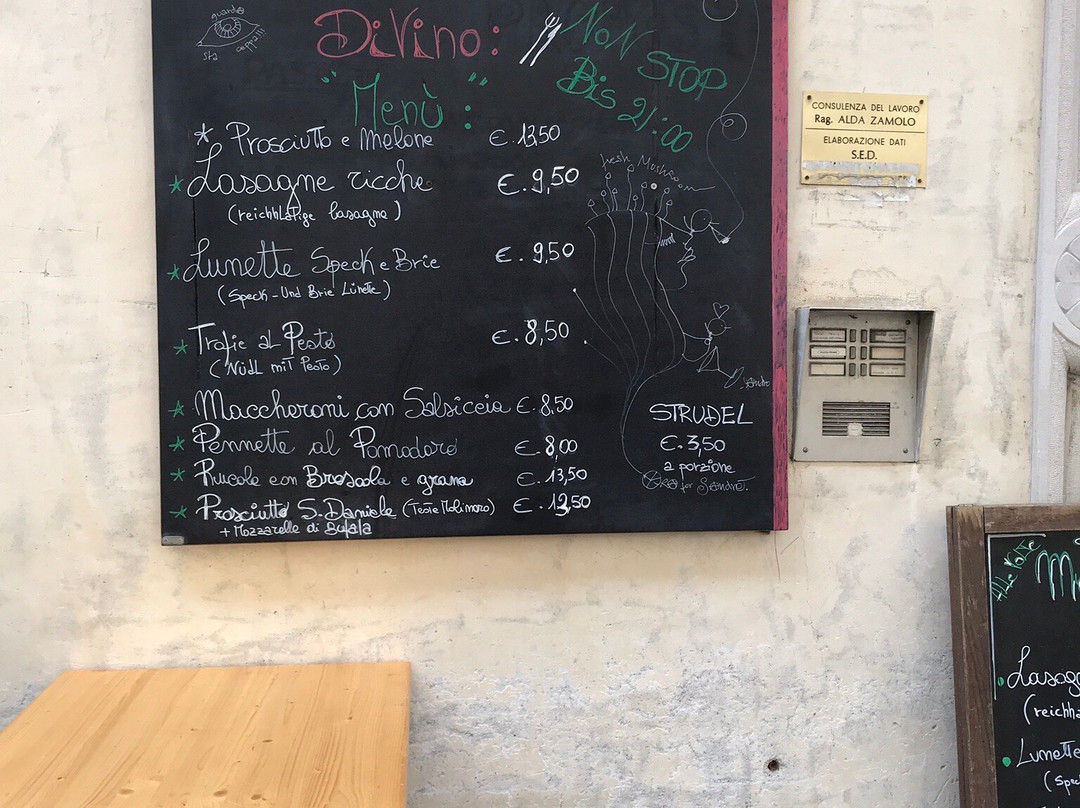 guarda
sta
coppa!!!
DiVino:
NoN STOP
Bis 21:00
"Menù":
* Prosciutto e Melone €. 13,50
* Lasagne ricche €. 9,50
(reichhaltige lasagne)
* Lunette Speck e Brie €. 9,50
(Speck-Und Brie Lünette)
* Trofie al Pesto €. 8,50
(Nüdl miT Pesto)
* Maccheroni con Salsiccia €. 8,50
* Pennette al Pomodoro €. 8,00
* Rucole con Bresaola e grana €. 13,50
* Prosciutto S. Daniele (Teste Molinaro) €. 13,50
+ Mozzarelle di Bufala
fresh Mushroom
STRUDEL
€. 3,50
a porzione
for Sandro.
CONSULENZA DEL LAVORO
Rag. ALDA ZAMOLO
ELABORAZIONE DATI
S.E.D.
Lasag
(reichha
Lunette
(Spec